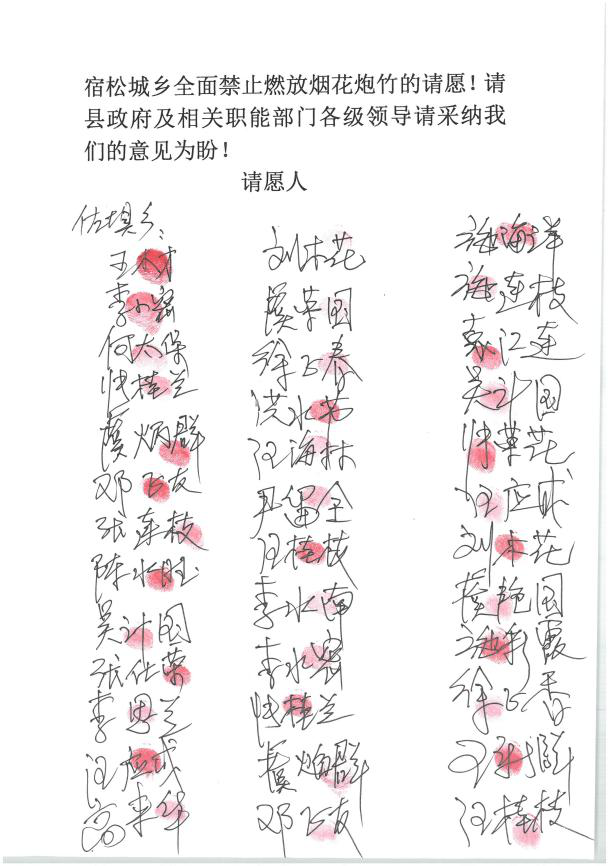 宿松城乡全面禁止燃放烟花炮竹的请愿！请
县政府及相关职能部门各级领导请采纳我
们的意见为盼！
请愿人
佐坝乡：
李小容
何太保
张桂兰
虞炳群
邓飞友
张莲枝
陈水旺
吴计国
张仕荣
李思兰
汪应成
高来华
刘木花
虞革国
徐正春
洪水苟
汪海林
尹留全
汪桂枝
李水南
李水容
张桂兰
虞炳群
邓飞友
施海洋
施连枝
袁江莲
吴计国
张革花
汪应成
刘木花
虞艳国
施彩霞
徐正香
汪桂枝